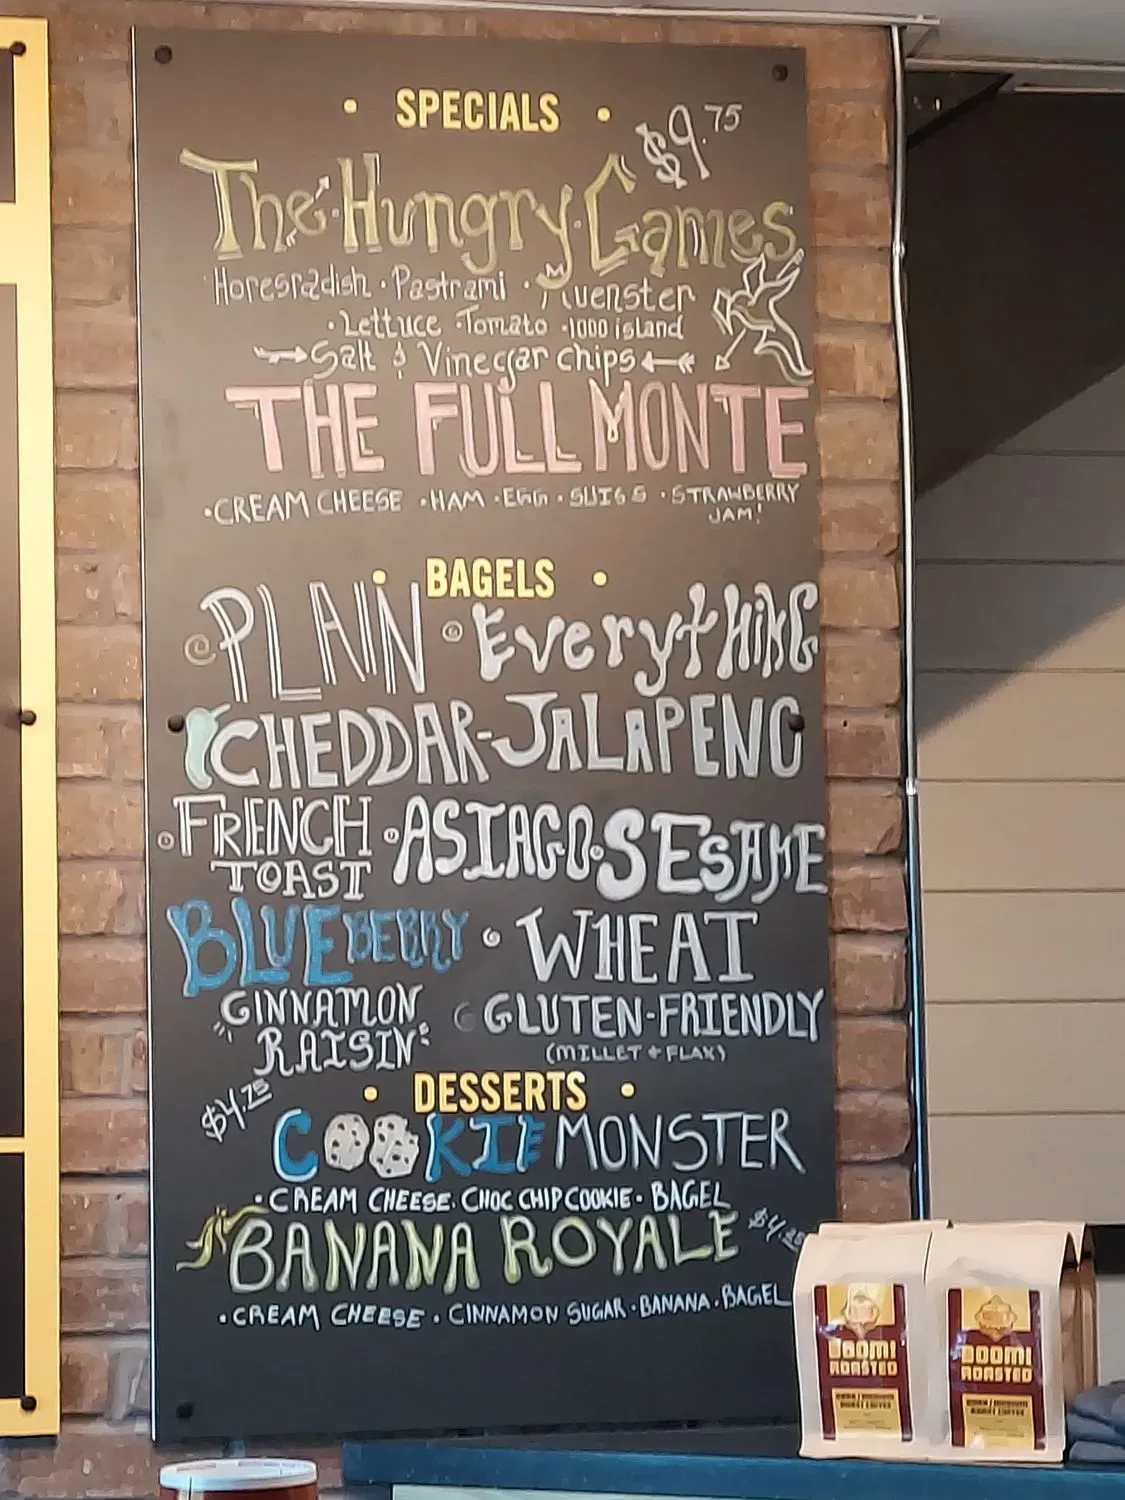 • SPECIALS •
$9.75
The Hungry Games
Horesradish • Pastrami • Muenster
• Lettuce • Tomato • 1000 island
Salt & Vinegar chips
THE FULL MONTE
• CREAM CHEESE • HAM • EGG • SWISS • STRAWBERRY
JAM!
• BAGELS •
PLAIN Everything
CHEDDAR-JALAPENO
FRENCH TOAST ASIAGO SESAME
BLUEBERRY WHEAT
CINNAMON RAISIN GLUTEN-FRIENDLY
(MILLET + FLAX)
• DESSERTS •
$4.25
COOKIE MONSTER
• CREAM CHEESE • CHOC CHIP COOKIE • BAGEL
BANANA ROYALE $4.25
• CREAM CHEESE • CINNAMON SUGAR • BANANA • BAGEL
BOOMI
ROASTED
BOOMI
ROASTED